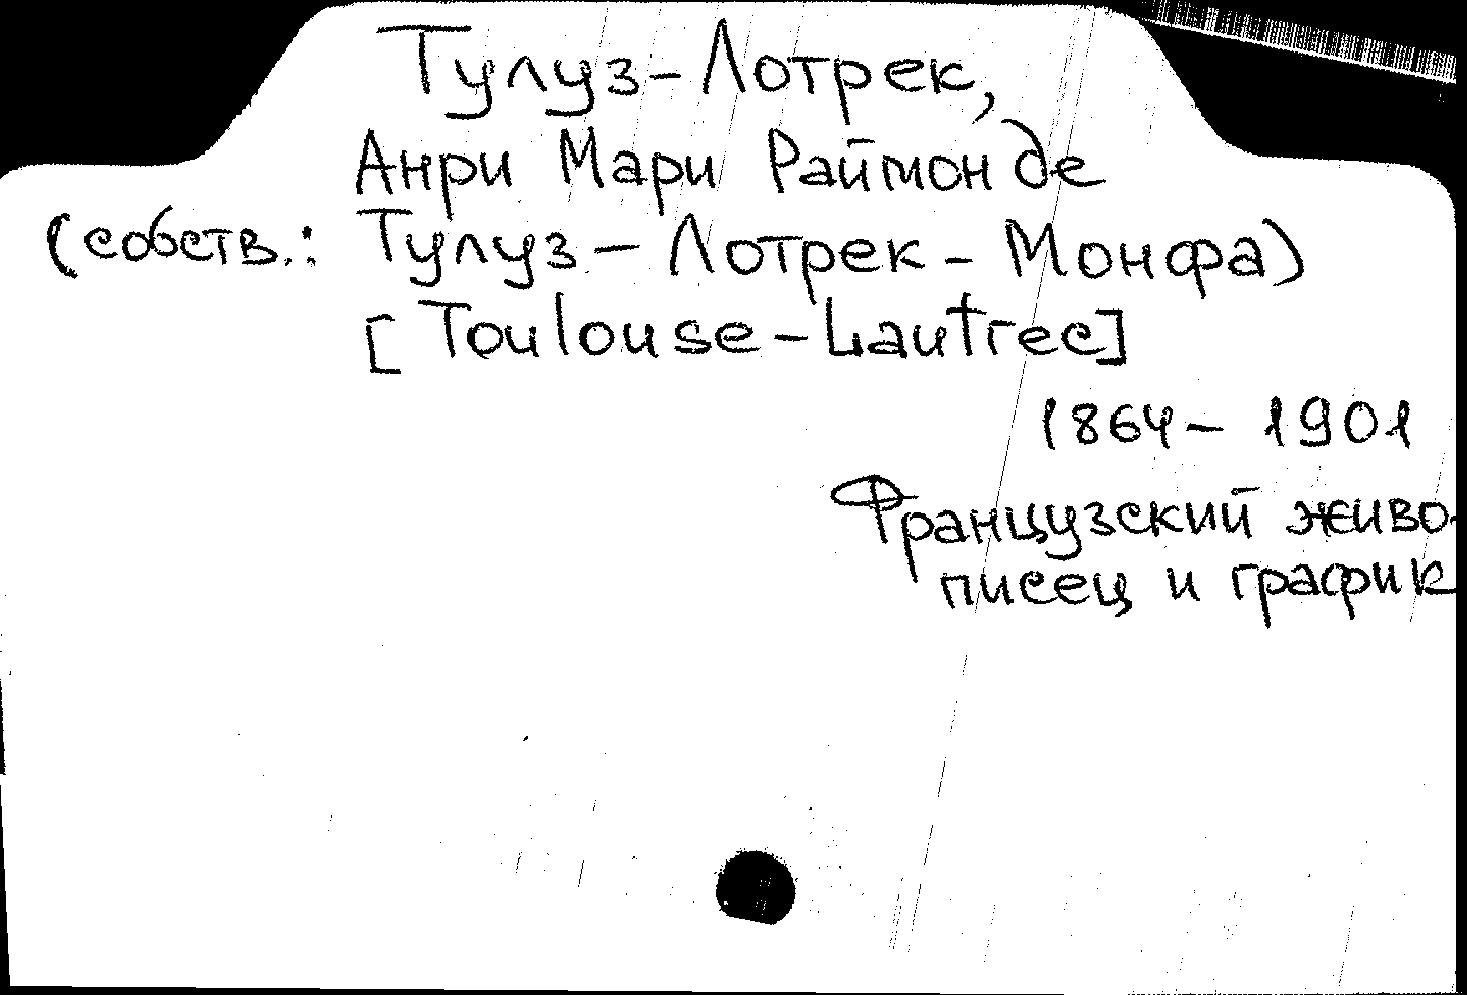 Тулуз-Лотрек,
Анри Мари Раймон де
(собств.: Тулуз-Лотрек-Монфа)
[Toulouse-Lautrec]
1864-1901
Французский живо-
писец и график